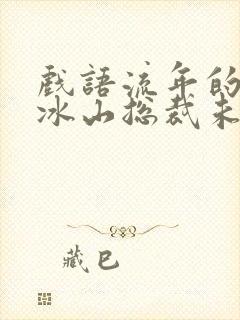 戲語流年的
冰山总裁未
藏巴